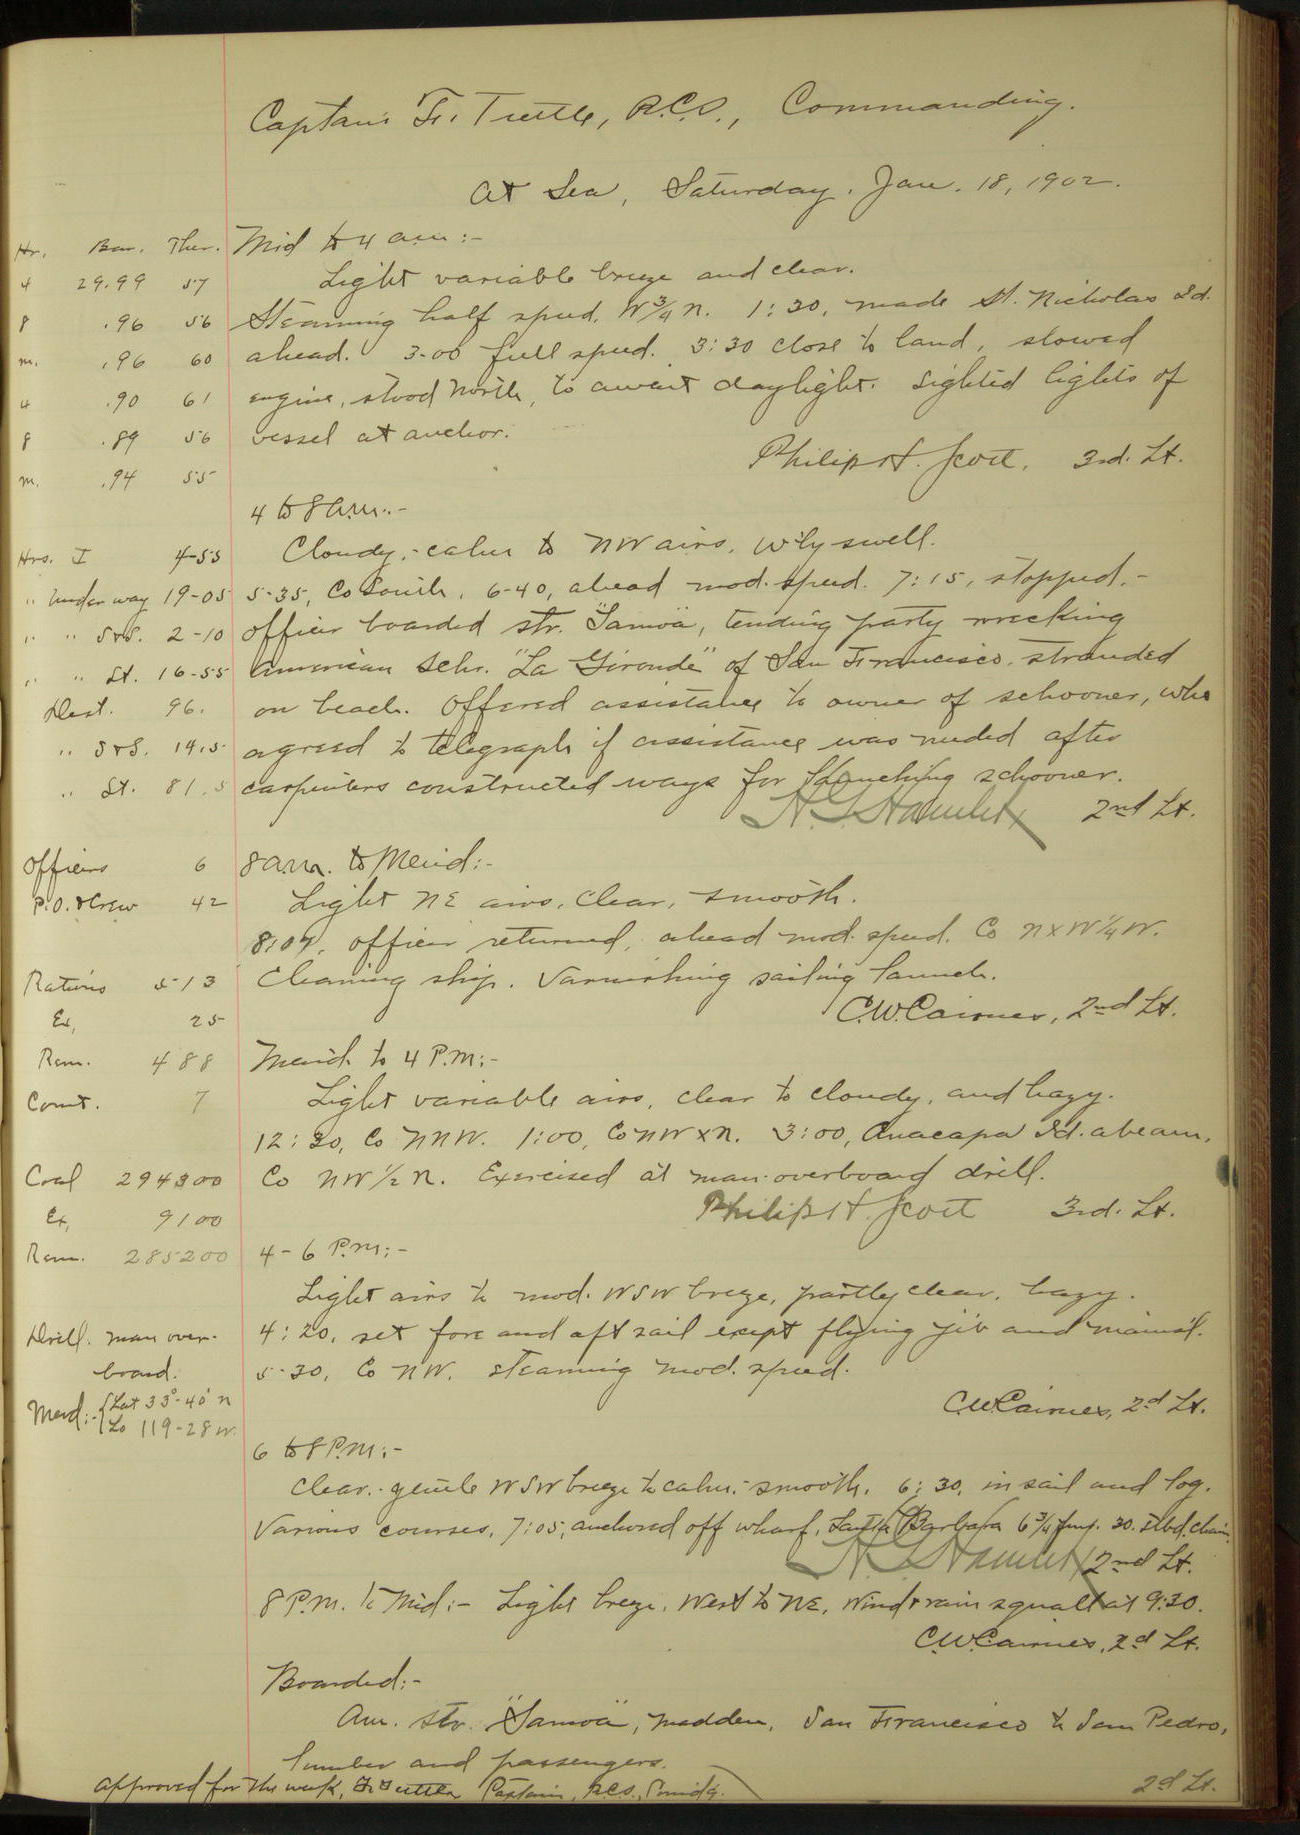 Captain F. Tuttle, R.C.S., Commanding.
At Sea, Saturday, Jan. 18, 1902.
Hr. Bar. Ther.
4 29.99 57
8 .96 56
m. .96 60
4 .90 61
8 .89 56
m. .94 55
Hrs. I 4-55
" Under way 19-05
" " S&S. 2-10
" " St. 16-55
Dist. 96.
" S&S. 14.5
" St. 81.5
Officers 6
P.O. & Crew 42
Rations 513
Ex. 25
Rem. 488
Comt. 7
Coal 294300
Ex. 9100
Rem. 285200
Drill. man over-
board.
Merid:- {Lat 33°-40' N
{Lo 119-28 W.
Mid to 4 am:-
Light variable breeze and clear.
Steaming half speed. W 3/4 N. 1:30, made St. Nicholas Id.
ahead. 3-00 full speed. 3:30 close to land, slowed
engine, stood North, to await daylight. Sighted lights of
vessel at anchor.
Philip H. Scott, 3rd. Lt.
4 to 8 a.m.-
Cloudy,- calm to NW airs, W'ly swell.
5-35, Co South, 6-40, ahead mod. speed. 7:15, stopped.-
Officer boarded str. "Samoa", tending party wrecking
American Schr. "La Gironde" of San Francisco, stranded
on beach. Offered assistance to owner of schooner, who
agreed to telegraph if assistance was needed after
carpenters constructed ways for launching schooner.
H G Hamlet 2nd Lt.
8 a.m. to Merid:-
Light NE airs, clear, smooth.
8:07, officer returned, ahead mod. speed. Co N x W 1/4 W.
Cleaning ship. Varnishing sailing launch.
C.W. Cairnes, 2nd Lt.
Merid. to 4 P.M:-
Light variable airs, clear to cloudy, and hazy.
12:30, Co NNW. 1:00, Co NW x N. 3:00, Anacapa Id. abeam,
Co NW 1/2 N. Exercised at man-overboard drill.
Philip H. Scott 3rd. Lt.
4-6 P.M:-
Light airs to mod. WSW breeze, partly clear, hazy.
4:20, set fore and aft sail except flying jib and mains'l.
5-30, Co NW. Steaming mod. speed.
C.W. Cairnes, 2d Lt.
6 to 8 P.M:-
Clear.- gentle WSW breeze to calm.- smooth. 6:30, in sail and log.
Various courses. 7:05, anchored off wharf, Santa Barbara 6 3/4 fms. 30. Stbd. chain.
H G Hamlet 2nd Lt.
8 P.M. to Mid:- Light breeze, West to NE, Wind & rain squall at 9:30.
C.W. Cairnes, 2d Lt.
Boarded:-
Am. Str. "Samoa", Madden, San Francisco to San Pedro,
lumber and passengers.
Approved for the week, F. Tuttle Captain, R.C.S., Comd'g.
2d Lt.